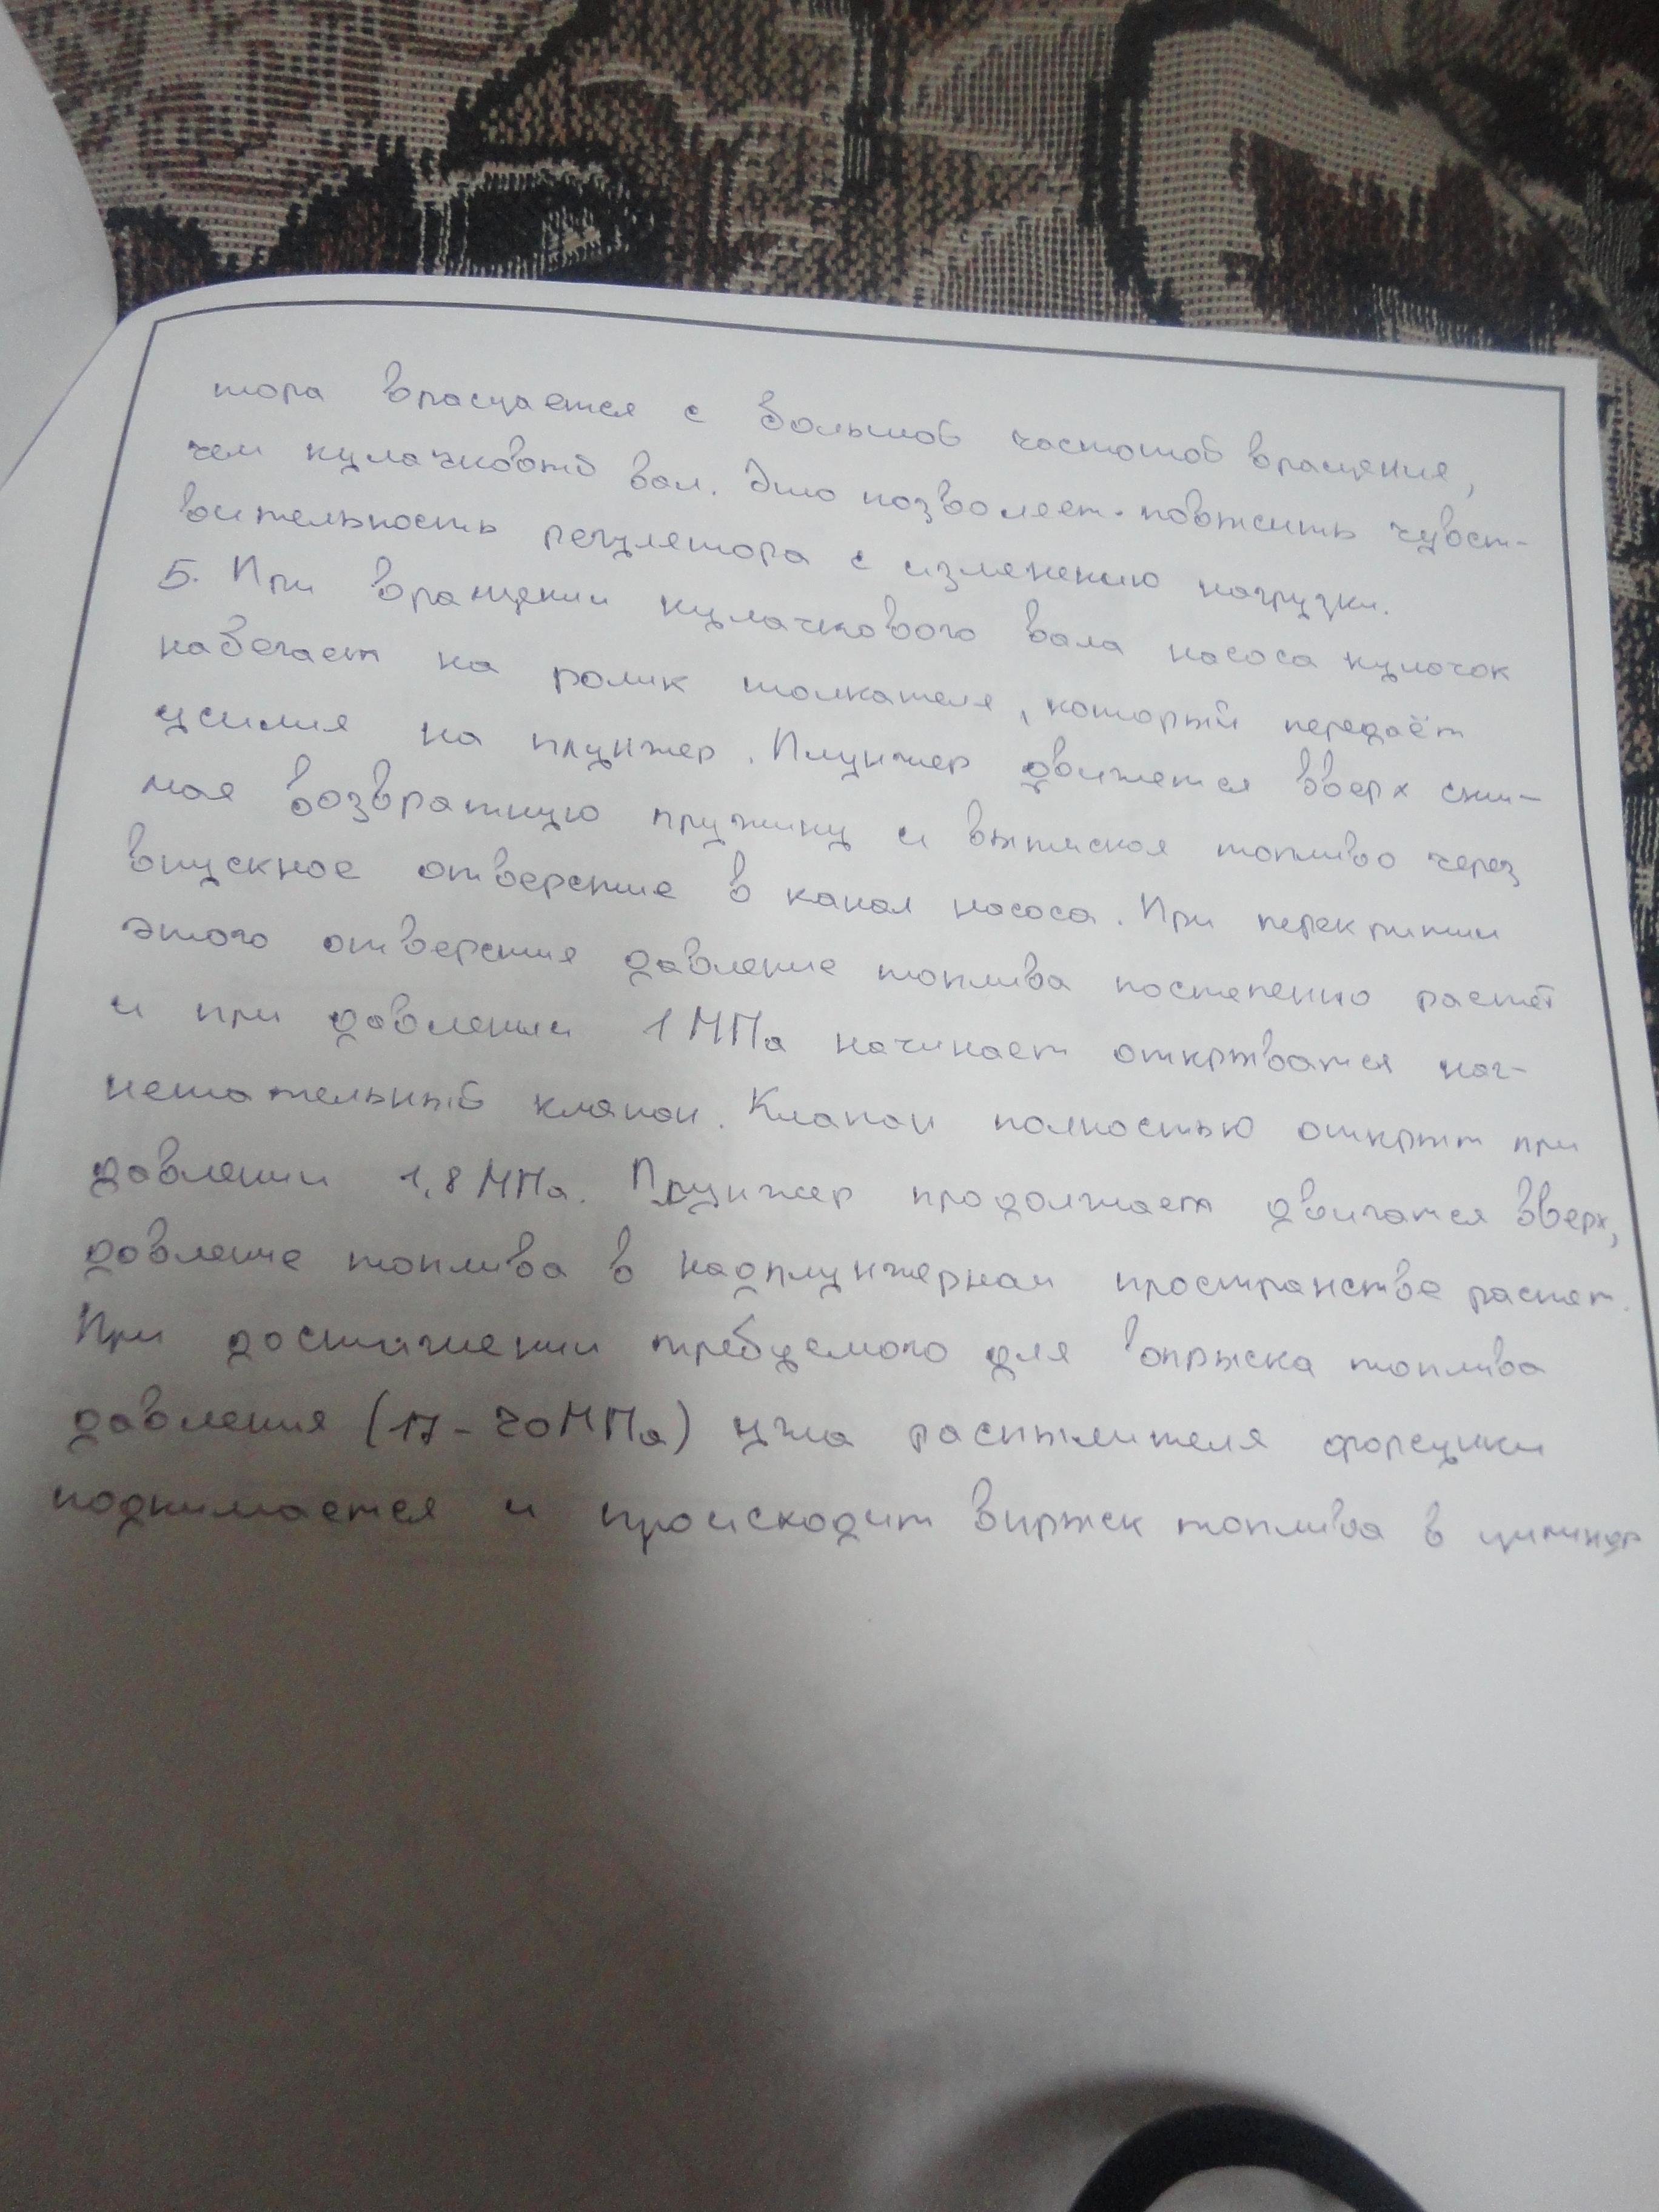 тора вращается с большой частотой вращения,
чем кулачковый вал. Это позволяет повысить чувст-
вительность регулятора с изменению нагрузки.
5. При вращении кулачкового вала насоса кулачок
набегает на ролик толкателя, который передаёт
усилия на плунжер. Плунжер движется вверх сжи-
мая возвратную пружину и вытиская топливо через
впускное отверстие в канал насоса. При перекритии
этого отверстия давление топлива постепенно растёт
и при давлении 1 МПа начинает открыватся наг-
нетательный клапан. Клапан полностью открыт при
давлении 1,8 МПа. Плунжер продолжает двигатся вверх,
давление топлива в надплунжерном пространстве растет.
При достижении требуемого для впрыска топлива
давления (17-20 МПа) игла распылителя форсунки
поднимается и происходит впрыск топлива в цилиндр